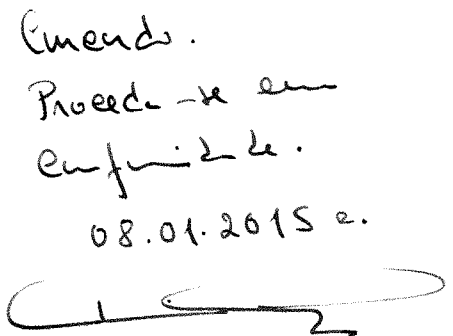 Concordo.
Proceda-se em
conformidade.
08.01.2015